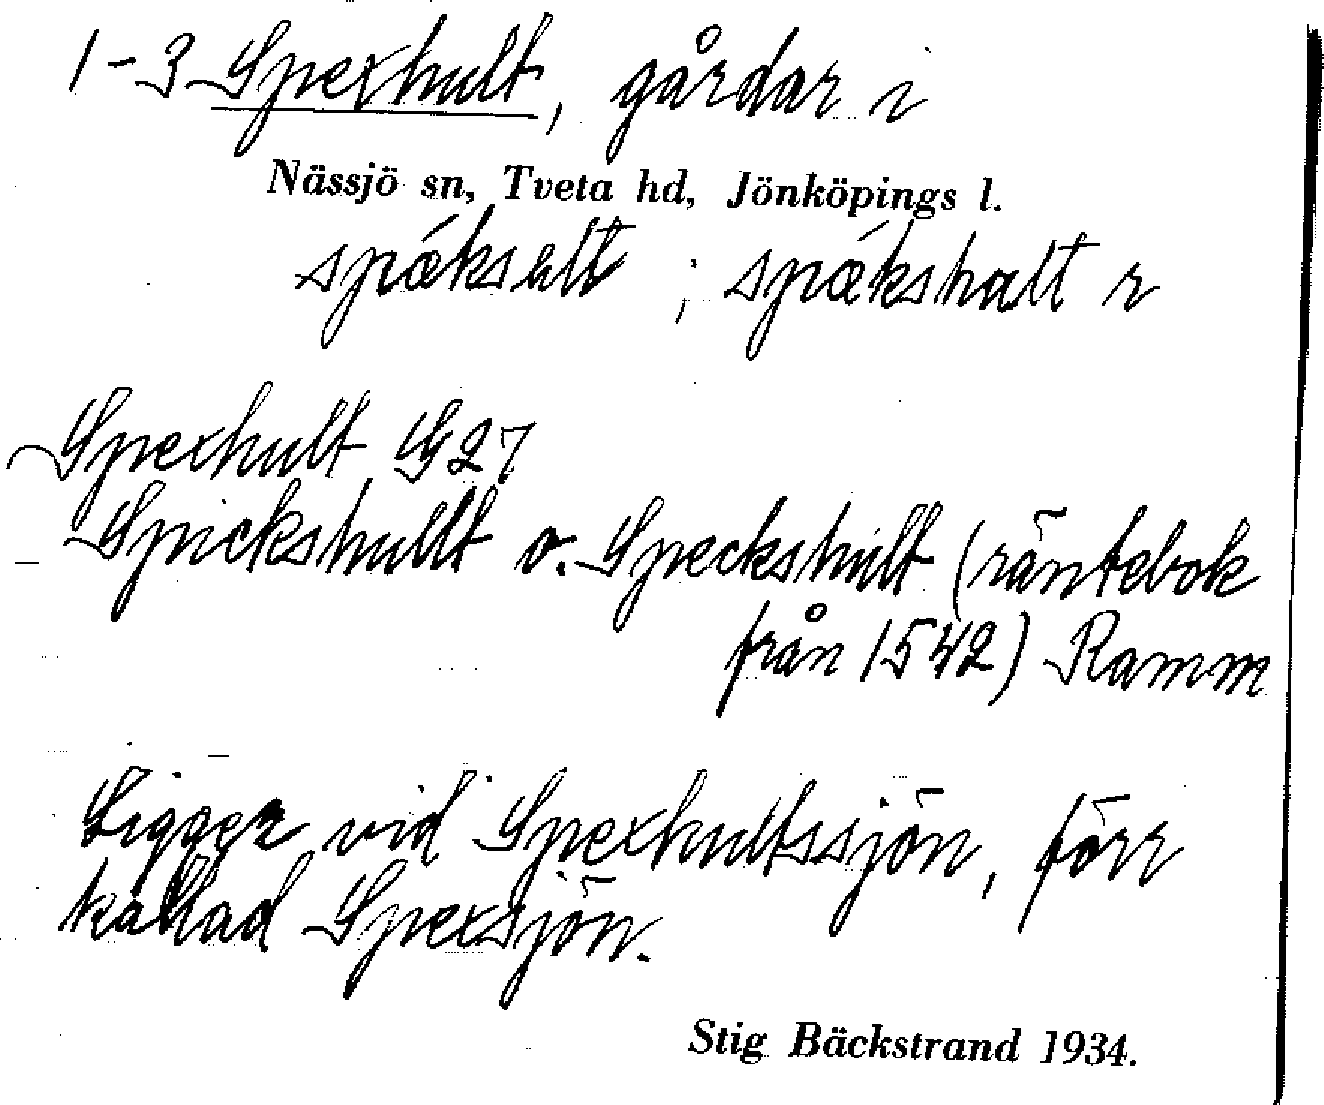 1-3 Spexhult, gårdar i
Nässjö sn, Tveta hd, Jönköpings l.
spǽksult ; spǽkshalt r
Spexhult G27
Spickshullt o. Speckshult (räntebok
från 1542) Ramm
Ligger vid Spexhultssjön, förr
kallad Spexsjön.
Stig Bäckstrand 1934.